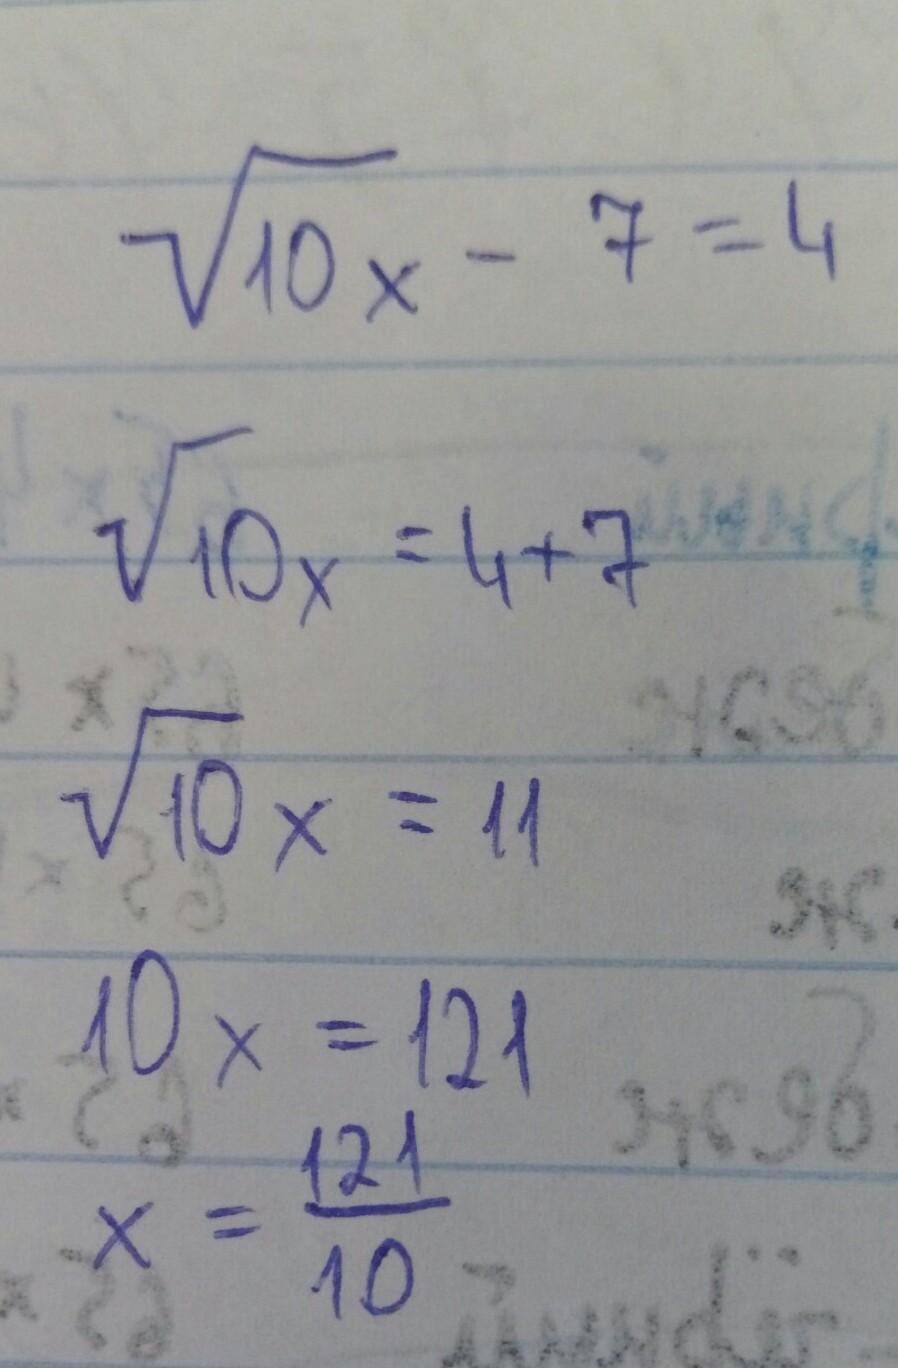 √10x - 7 = 4
√10x = 4+7
√10x = 11
10x = 121
x = 121/10